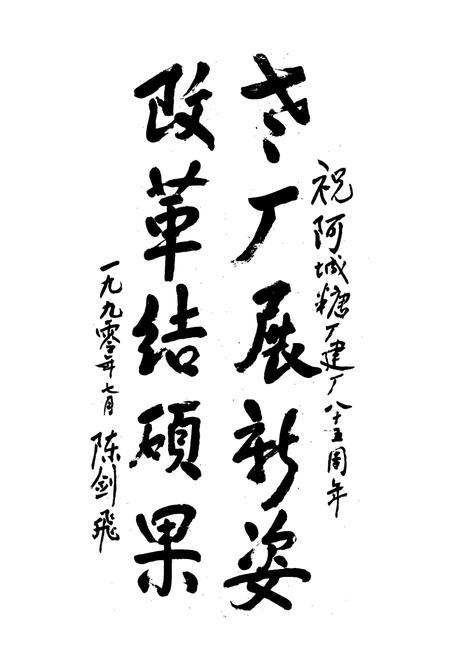 祝阿城糖厂建厂八十五周年
老厂展新姿
改革结硕果
一九九零年七月 陈剑飞